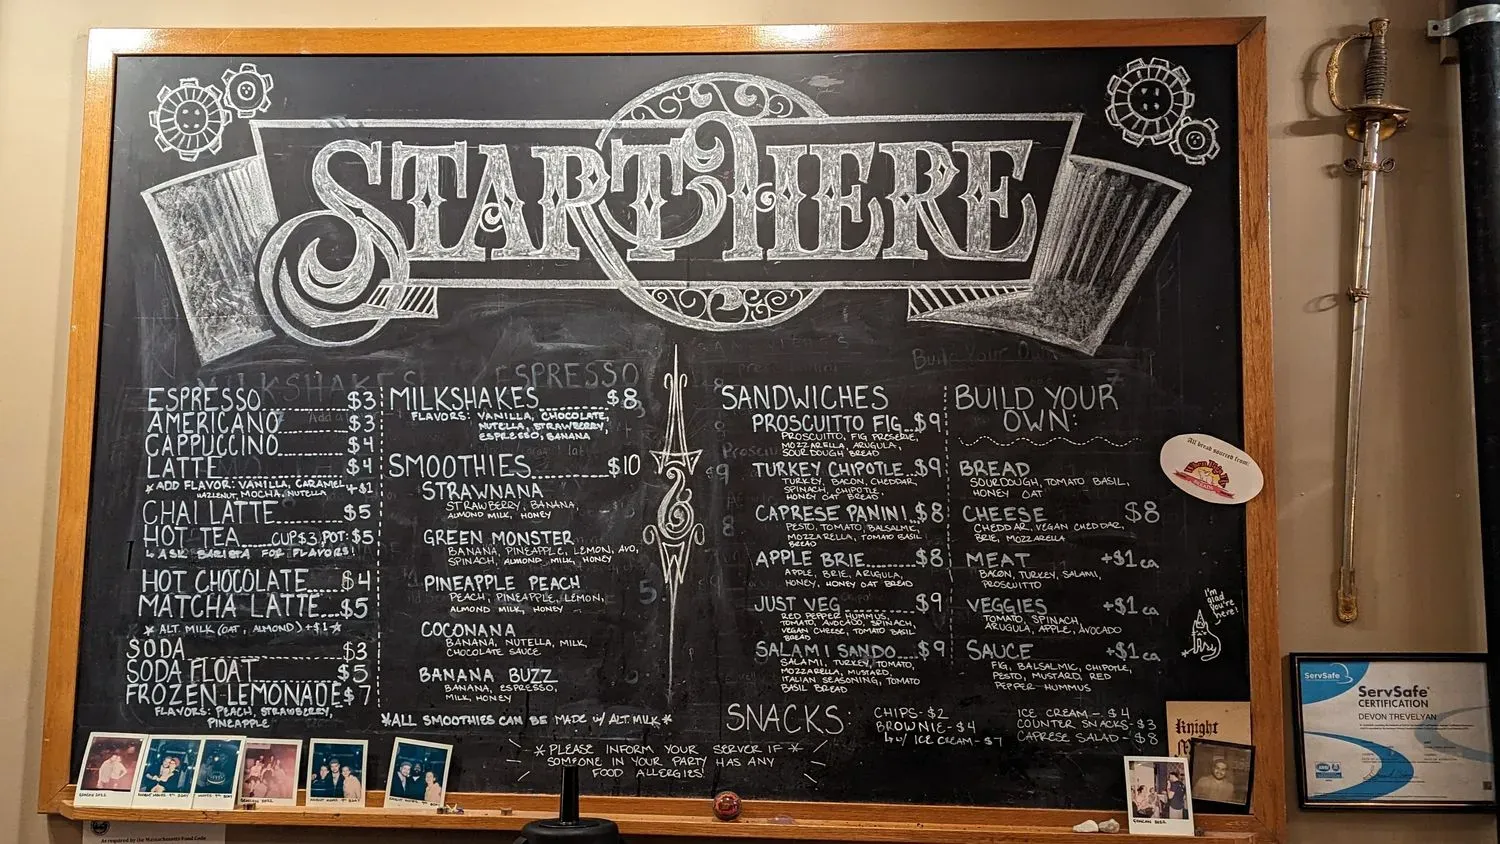 START HERE
ESPRESSO $3
AMERICANO $3
CAPPUCCINO $4
LATTE $4
*ADD FLAVOR: VANILLA, CARAMEL,
HAZELNUT, MOCHA, NUTELLA +$1
CHAI LATTE $5
HOT TEA CUP $3 POT: $5
ASK BARISTA FOR FLAVORS!
HOT CHOCOLATE $4
MATCHA LATTE $5
* ALT. MILK (OAT, ALMOND) +$1 *
SODA $3
SODA FLOAT $5
FROZEN LEMONADE $7
FLAVORS: PEACH, STRAWBERRY,
PINEAPPLE
ESPRESSO
MILKSHAKES $8
FLAVORS: VANILLA, CHOCOLATE,
NUTELLA, STRAWBERRY,
ESPRESSO, BANANA
SMOOTHIES $10
STRAWNANA
STRAWBERRY, BANANA,
ALMOND MILK, HONEY
GREEN MONSTER
BANANA, PINEAPPLE, LEMON, AVO,
SPINACH, ALMOND MILK, HONEY
PINEAPPLE PEACH
PEACH, PINEAPPLE, LEMON,
ALMOND MILK, HONEY
COCONANA
BANANA, NUTELLA, MILK,
CHOCOLATE SAUCE
BANANA BUZZ
BANANA, ESPRESSO,
MILK, HONEY
*ALL SMOOTHIES CAN BE MADE W/ ALT. MILK*
* PLEASE INFORM YOUR SERVER IF *
SOMEONE IN YOUR PARTY HAS ANY
FOOD ALLERGIES!
SANDWICHES
PROSCUITTO FIG $9
PROSCUITTO, FIG PRESERVE,
MOZZARELLA, ARUGULA,
SOURDOUGH BREAD
TURKEY CHIPOTLE $9
TURKEY, BACON, CHEDDAR,
SPINACH, CHIPOTLE,
HONEY OAT BREAD
CAPRESE PANINI $8
PESTO, TOMATO, BALSALMIC,
MOZZARELLA, TOMATO BASIL
BREAD
APPLE BRIE $8
APPLE, BRIE, ARUGULA,
HONEY, HONEY OAT BREAD
JUST VEG $9
RED PEPPER HUMMUS,
TOMATO, AVOCADO, SPINACH,
VEGAN CHEESE, TOMATO BASIL
BREAD
SALAMI SANDO $9
SALAMI, TURKEY, TOMATO,
MOZZARELLA, MUSTARD,
ITALIAN SEASONING, TOMATO
BASIL BREAD
Build Your Own
BUILD YOUR
OWN:
BREAD
SOURDOUGH, TOMATO BASIL,
HONEY OAT
CHEESE $8
CHEDDAR, VEGAN CHEDDAR,
BRIE, MOZZARELLA
MEAT +$1 ea
BACON, TURKEY, SALAMI,
PROSCUITTO
VEGGIES +$1 ea
TOMATO, SPINACH,
ARUGULA, APPLE, AVOCADO
SAUCE +$1 ea
FIG, BALSALMIC, CHIPOTLE,
PESTO, MUSTARD, RED
PEPPER HUMMUS
SNACKS:
CHIPS - $2
BROWNIE - $4
W/ ICE CREAM - $7
ICE CREAM - $4
COUNTER SNACKS - $3
CAPRESE SALAD - $8
All bread sourced from:
I'm
glad
you're
here!
Knight
ServSafe
ServSafe
CERTIFICATION
DEVON TREVELYAN
As required by the Massachusetts Food Code